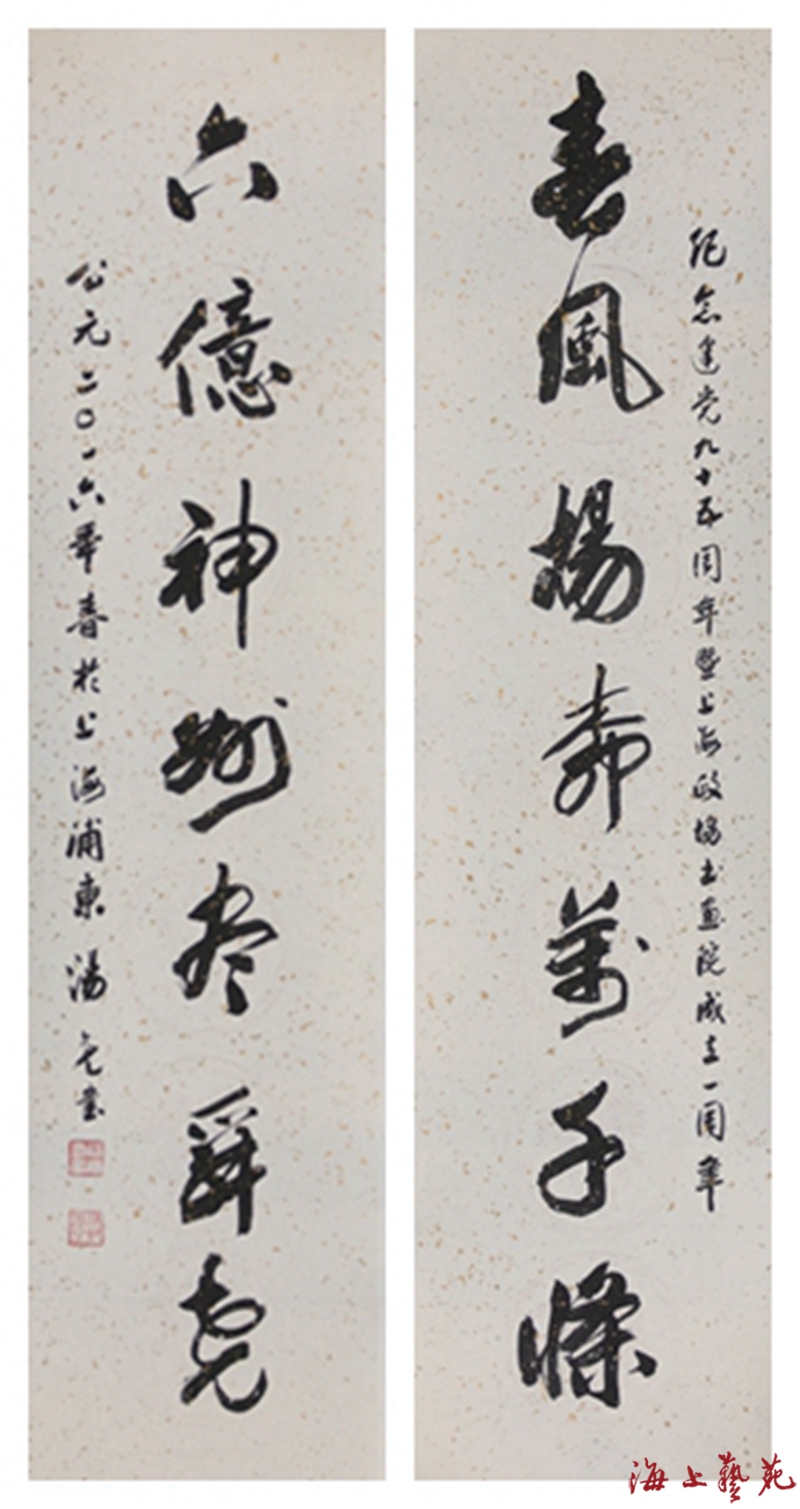 纪念建党九十五周年暨上海政協书画院成立一周年
春風楊柳萬千條
六億神州盡舜堯
公元二〇一六年春於上海浦東 湯亮書
海上藝苑